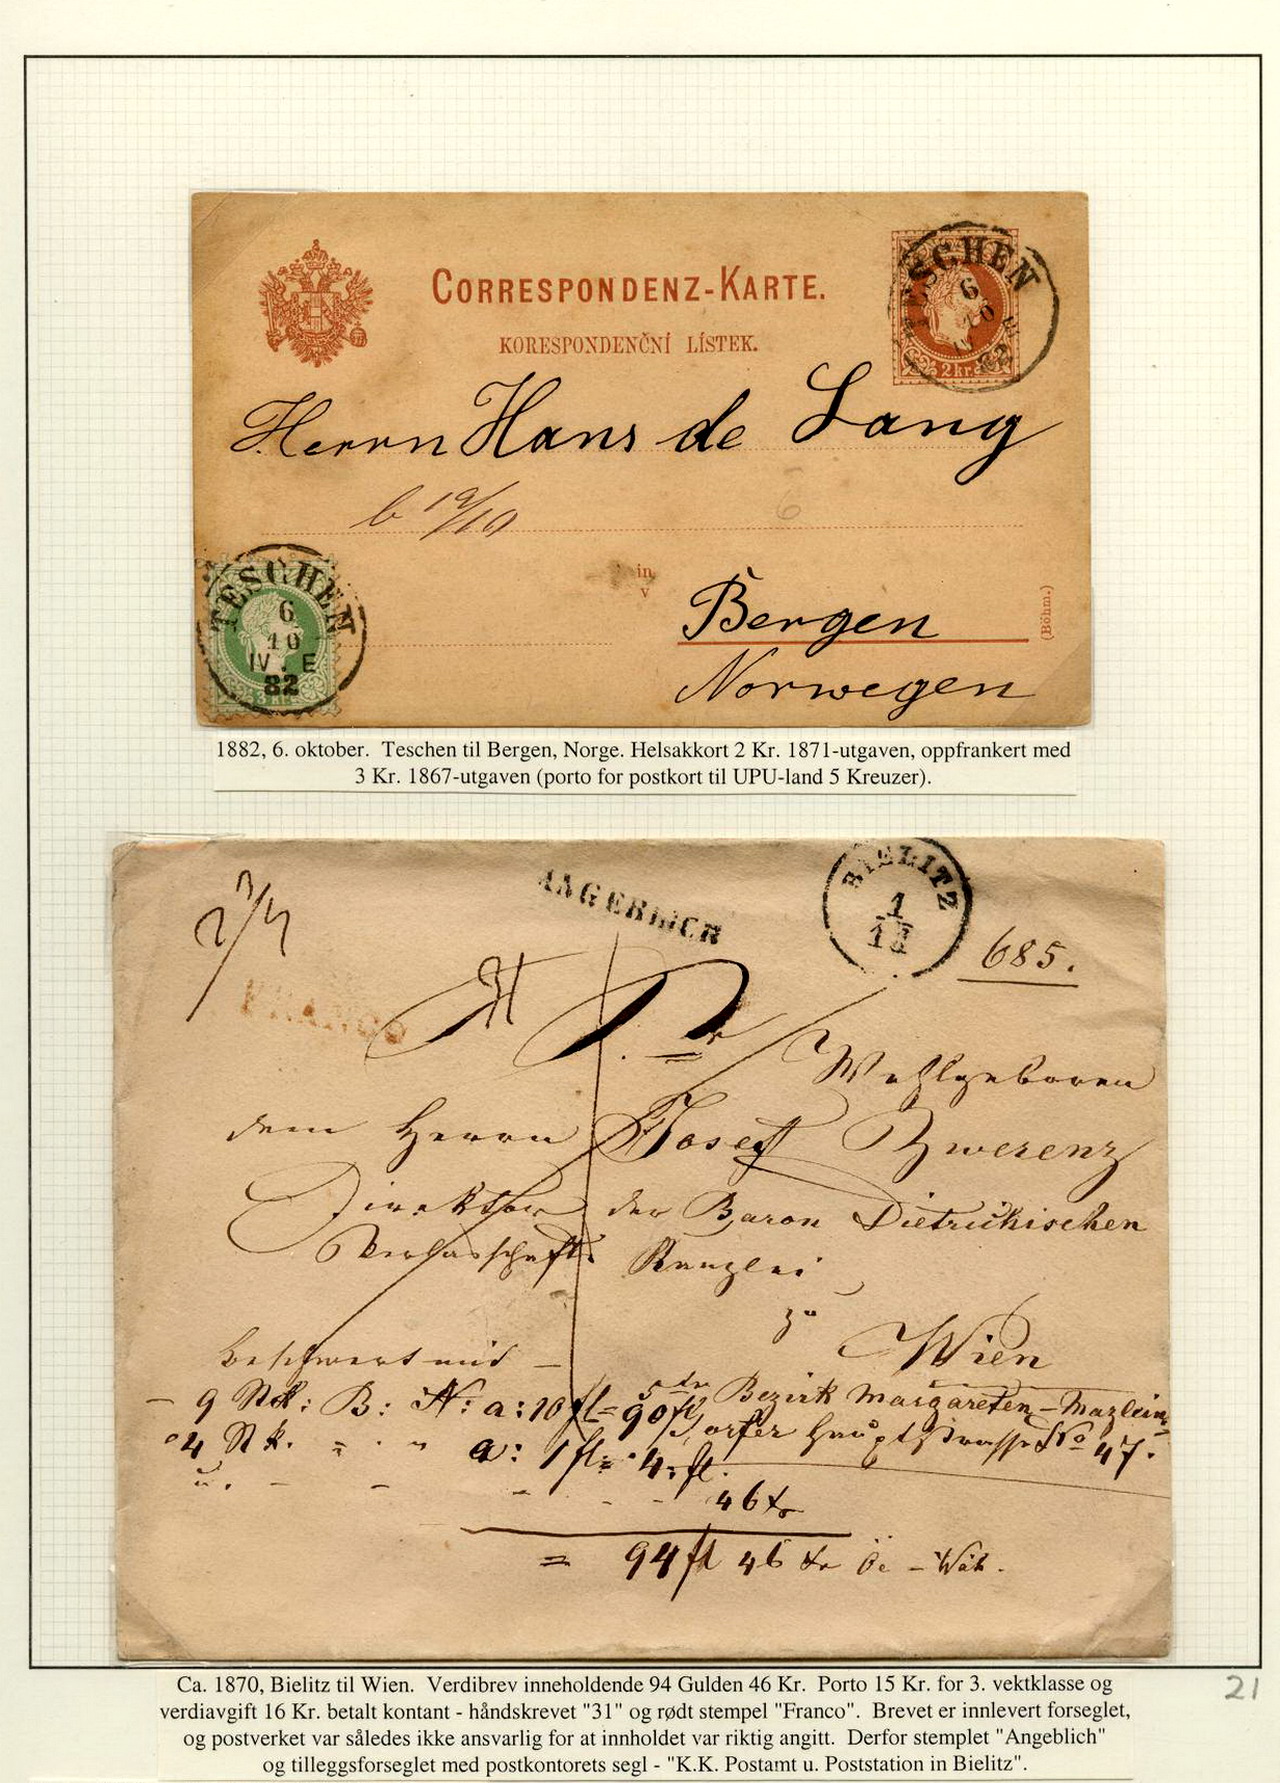 CORRESPONDENZ-KARTE.
KORESPONDENČNÍ LÍSTEK.
TESCHEN
6
10
IV E
82
2 kr.
Herrn Hans de Lang
b 19/10
6
in
v
Bergen
(Böhm.)
Norwegen
TESCHEN
6
10
IV. E
82
3 kr
1882, 6. oktober.  Teschen til Bergen, Norge. Helsakkort 2 Kr. 1871-utgaven, oppfrankert med
3 Kr. 1867-utgaven (porto for postkort til UPU-land 5 Kreuzer).
BIELITZ
1
685.
FRANCO
31
Wohlgeboren
dem Herrn Josef Zwerenz
Direktor der Baron Dietrichischen
Kanzlei
zu
Wien
beschwert mit
9 Stk: B: N: a: 10 fl = 90 fl
5 Bezirk Margareten - Mazleins
4 Stk. " . " a: 1 fl = 4 fl.
dorfer Hauptstrasse No 47.
u. - - - - - 46 kr
= 94 fl 46 kr Öe - Wäh.
Ca. 1870, Bielitz til Wien.  Verdibrev inneholdende 94 Gulden 46 Kr.  Porto 15 Kr. for 3. vektklasse og
verdiavgift 16 Kr. betalt kontant - håndskrevet "31" og rødt stempel "Franco".  Brevet er innlevert forseglet,
og postverket var således ikke ansvarlig for at innholdet var riktig angitt.  Derfor stemplet "Angeblich"
og tilleggsforseglet med postkontorets segl - "K.K. Postamt u. Poststation in Bielitz".
21